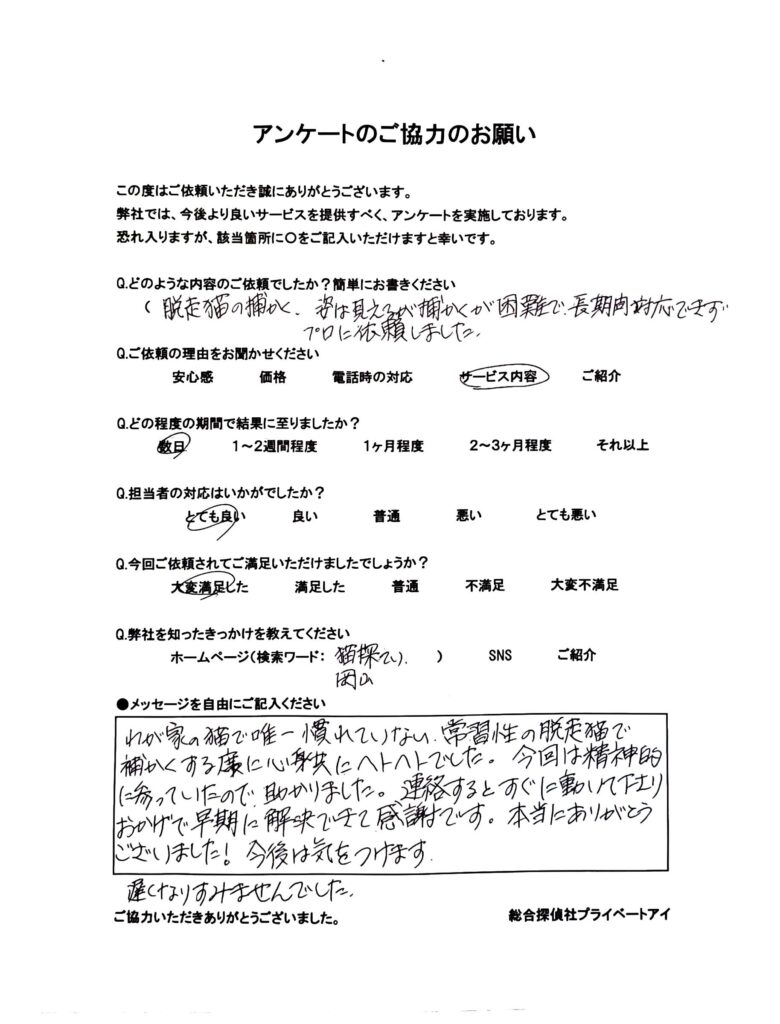 アンケートのご協力のお願い
この度はご依頼いただき誠にありがとうございます。
弊社では、今後より良いサービスを提供すべく、アンケートを実施しております。
恐れ入りますが、該当箇所に〇をご記入いただけますと幸いです。
Q.どのような内容のご依頼でしたか？簡単にお書きください
（脱走猫の捕かく、姿は見えるが捕かくが困難で、長期間対応できず
プロに依頼しました。
Q.ご依頼の理由をお聞かせください
安心感 価格 電話時の対応 サービス内容 ご紹介
Q.どの程度の期間で結果に至りましたか？
数日 1～2週間程度 1ヶ月程度 2～3ヶ月程度 それ以上
Q.担当者の対応はいかがでしたか？
とても良い 良い 普通 悪い とても悪い
Q.今回ご依頼されてご満足いただけましたでしょうか？
大変満足した 満足した 普通 不満足 大変不満足
Q.弊社を知ったきっかけを教えてください
ホームページ（検索ワード： 猫探てい、 ） SNS ご紹介
岡山
●メッセージを自由にご記入ください
わが家の猫で唯一慣れていない、常習性の脱走猫で
捕かくする度に心身共にヘトヘトでした。今回は精神的
に参っていたので、助かりました。連絡するとすぐに動いて下さり
おかげで早期に解決できて感謝です。本当にありがとう
ございました！今後は気をつけます。
遅くなりすみませんでした。
ご協力いただきありがとうございました。 総合探偵社プライベートアイ